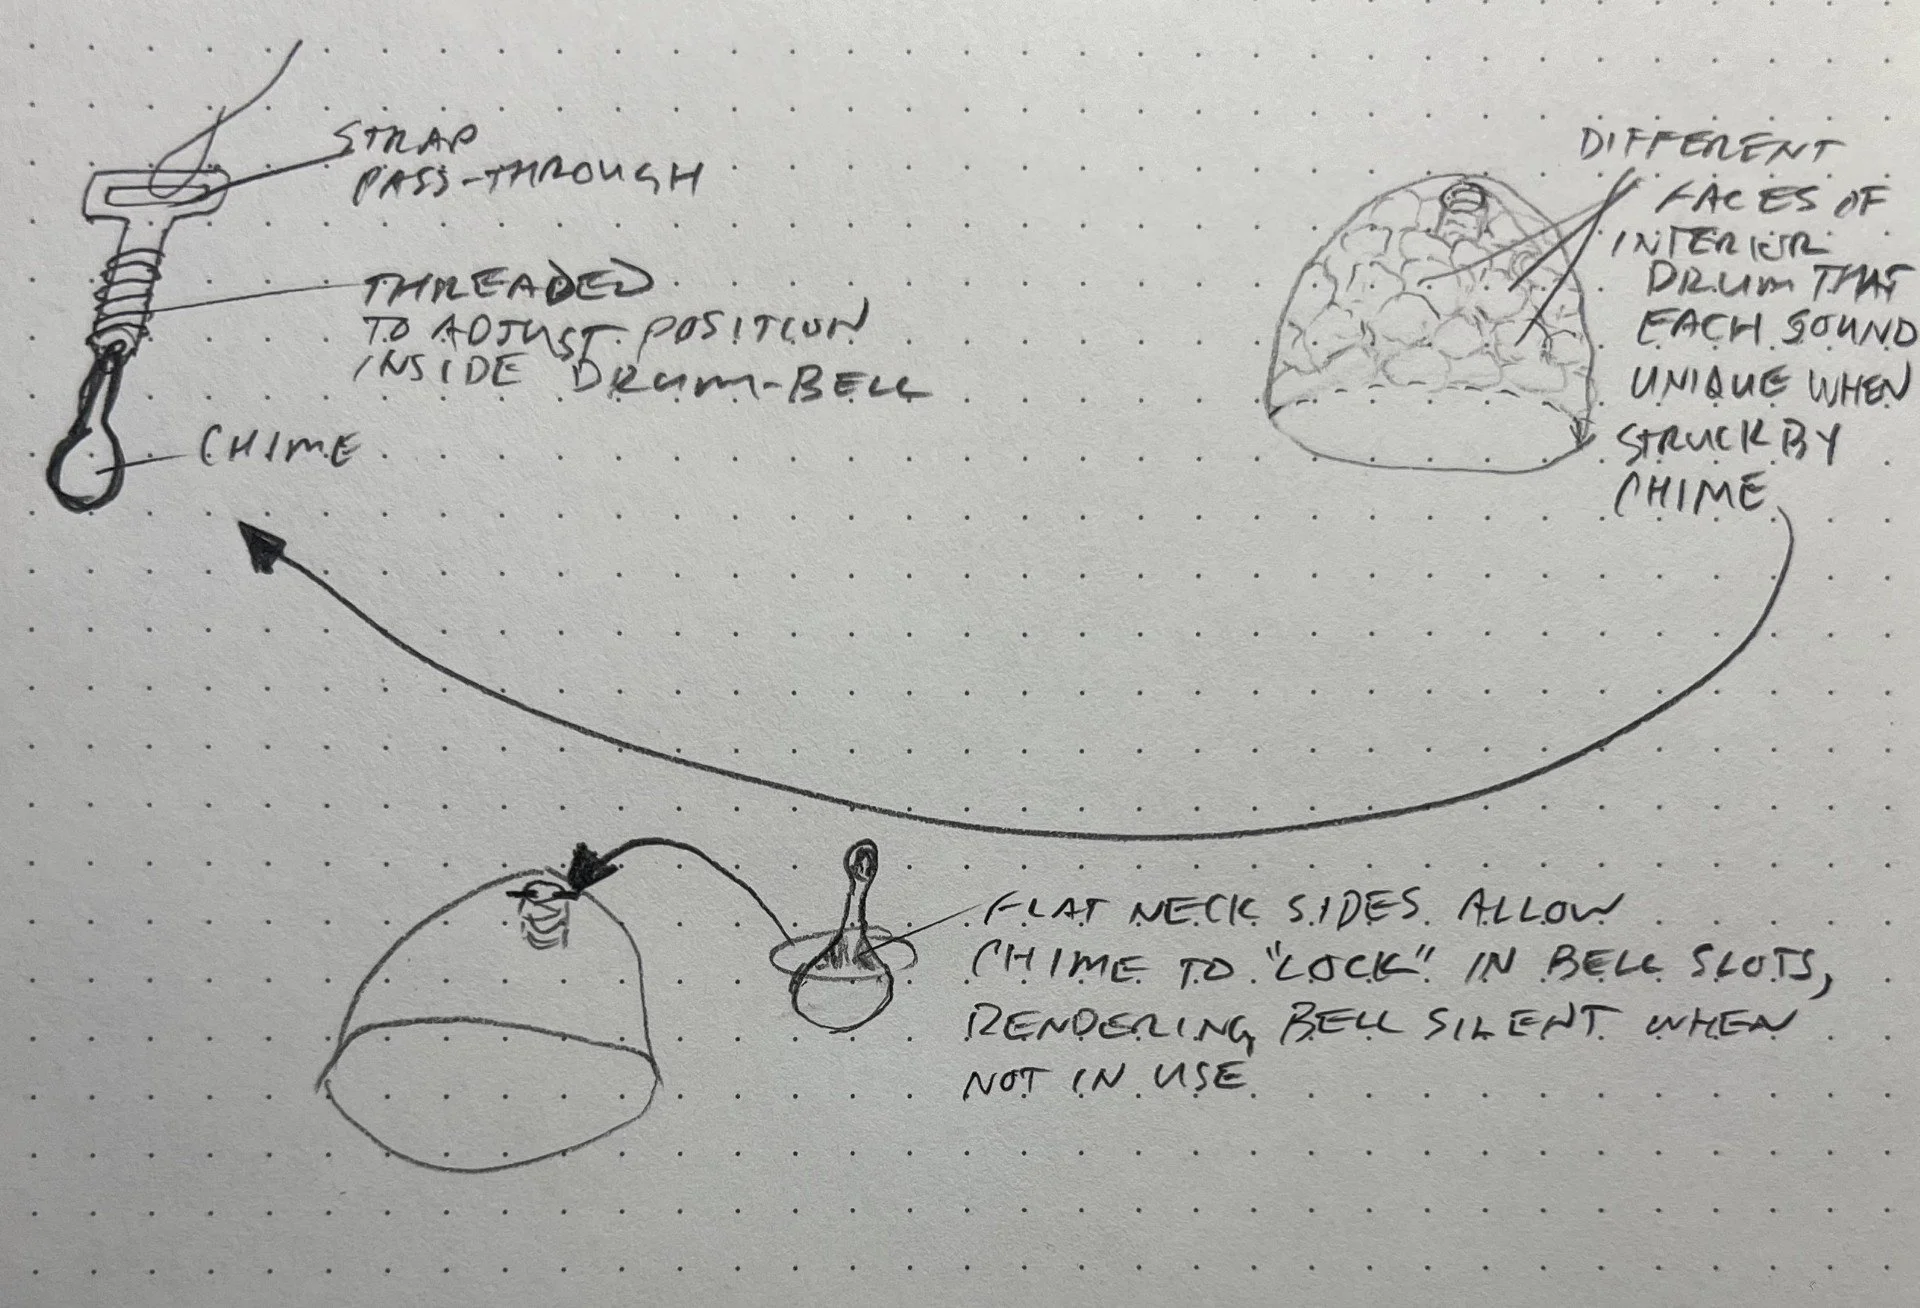 STRAP
PASS-THROUGH
THREADED
TO ADJUST POSITION
INSIDE DRUM-BELL
CHIME
DIFFERENT
FACES OF
INTERIOR
DRUM THAT
EACH SOUND
UNIQUE WHEN
STRUCK BY
CHIME
FLAT NECK SIDES ALLOW
CHIME TO "LOCK" IN BELL SLOTS,
RENDERING BELL SILENT WHEN
NOT IN USE